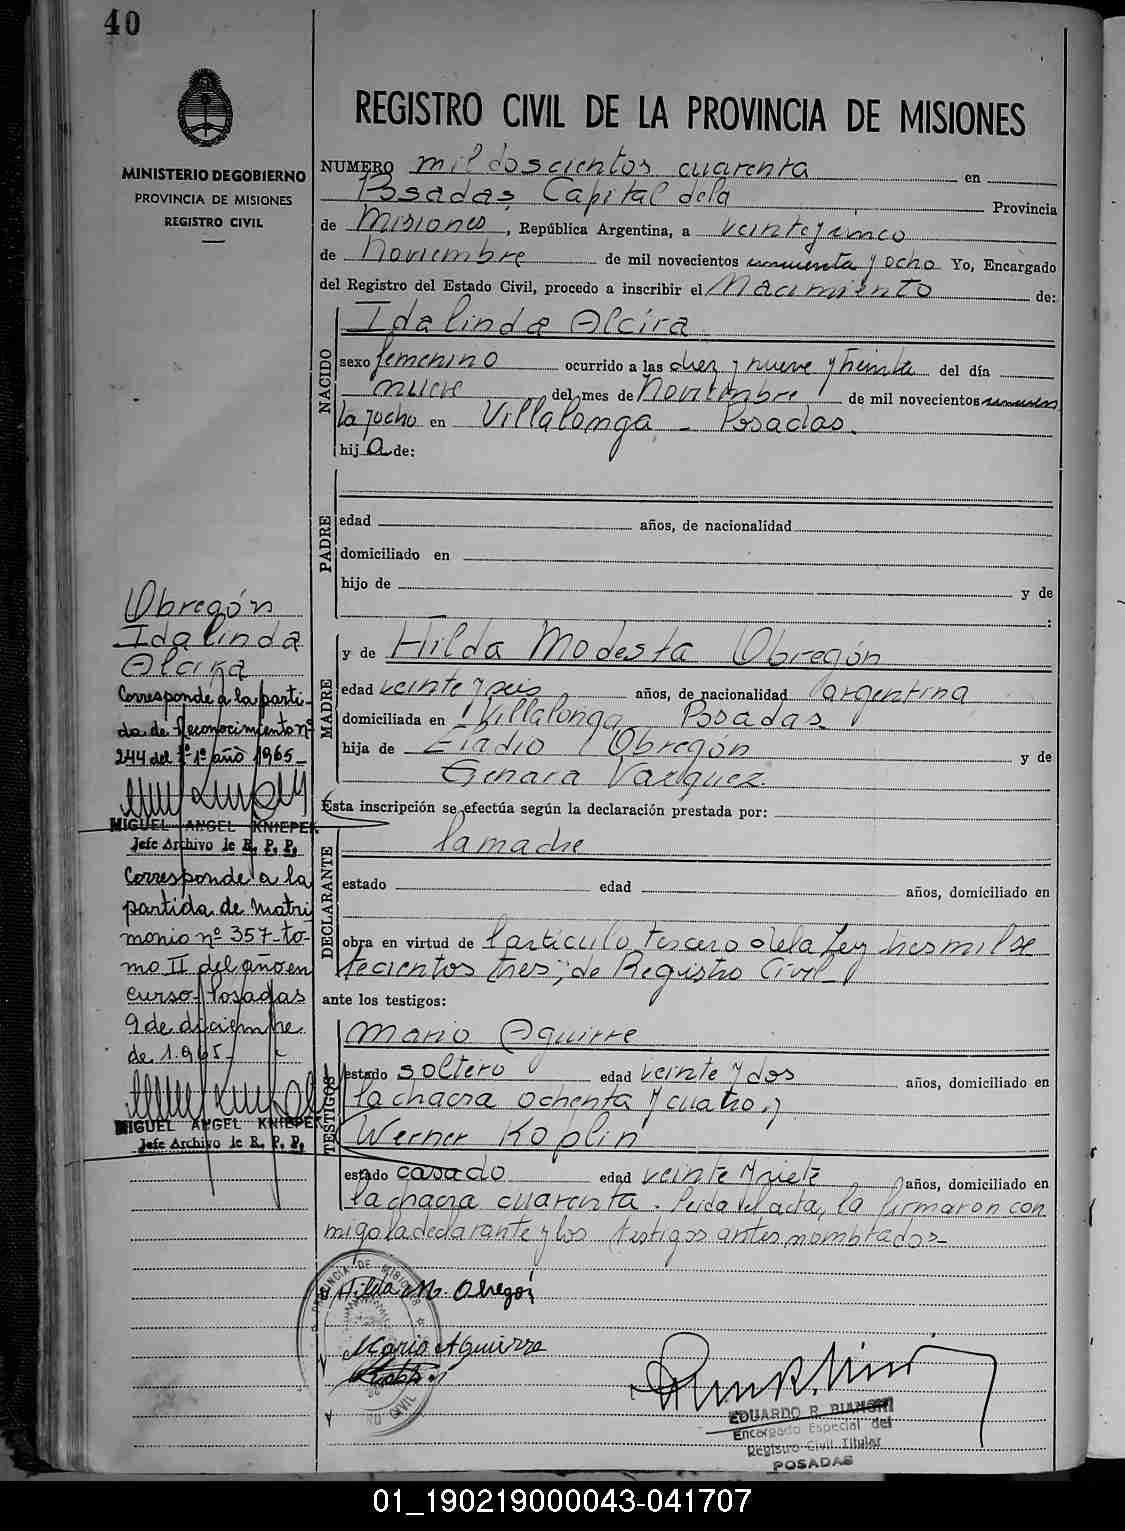 40
MINISTERIO DE GOBIERNO
PROVINCIA DE MISIONES
REGISTRO CIVIL
REGISTRO CIVIL DE LA PROVINCIA DE MISIONES
NUMERO mil doscientos cuarenta en
Posadas, Capital de la Provincia
de Misiones, República Argentina, a veinte y cinco
de Noviembre de mil novecientos cincuenta y ocho Yo, Encargado
del Registro del Estado Civil, procedo a inscribir el Nacimiento de:
NACIDO
Idalinda Alcira
sexo femenino ocurrido a las diez y nueve y treinta del día
nueve del mes de Noviembre de mil novecientos cincuen
ta y ocho en Villalonga - Posadas.
hija de:
PADRE
edad años, de nacionalidad
domiciliado en
hijo de y de
:
MADRE
y de Hilda Modesta Obregón
edad veinte y seis años, de nacionalidad argentina
domiciliada en Villalonga Posadas
hija de Eladio Obregón y de
Genara Vazquez.
Esta inscripción se efectúa según la declaración prestada por:
DECLARANTE
la madre
estado edad años, domiciliado en
obra en virtud de l'artículo tercero de la Ley tres mil se
tecientos tres, de Registro Civil
ante los testigos:
TESTIGOS
Mario Aguirre
estado soltero edad veinte y dos años, domiciliado en
la chacra ochenta y cuatro y
Werner Koplin
estado casado edad veinte y siete años, domiciliado en
la chacra cuarenta. Leida el acta, la firmaron con
migo la declarante y los testigos antes nombrados-
Hilda M. Obregón
Mario Aguirre
EDUARDO R. BIANCHI
Encargado Especial del
Registro Civil Titular
POSADAS
Obregón
Idalinda
Alcira
Corresponde a la parti-
da de Reconocimiento nº
244 del Tº 1º año 1965-
MIGUEL ANGEL KNIEPER
Jefe Archivo de R. P. P.
Corresponde a la
partida de matri
monio nº 357-to-
mo II del año en
curso-Posadas
9 de diciembre
de 1.965-
MIGUEL ANGEL KNIEPER
Jefe Archivo de R. P. P.
PROVINCIA DE MISIONES
01_190219000043-041707